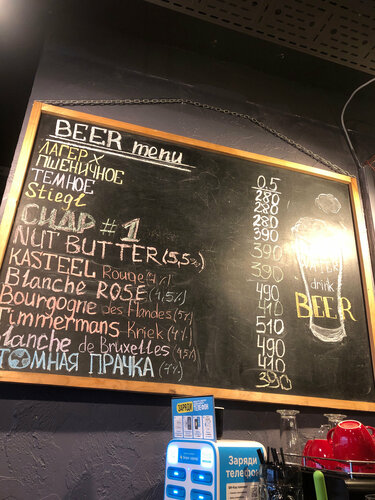 BEER menu
0.5
ЛАГЕР X 280
ПШЕНИЧНОЕ 280
ТЕМНОЕ 280
Stiegl 390
СИДР #1 390
NUT BUTTER (5,5%) 390
KASTEEL Rouge (4%) 490
Blanche ROSÉ (4,5%) 410
Bourgogne des Flandes (5%) 510
Timmermans Kriek (4%) 490
Blanche de Bruxelles (4,5%) 410
ТОМНАЯ ПРАЧКА (4%) 390
WATER
drink
BEER
ЗАРЯДИ
ТЕЛЕФОН
Заряди
телефон